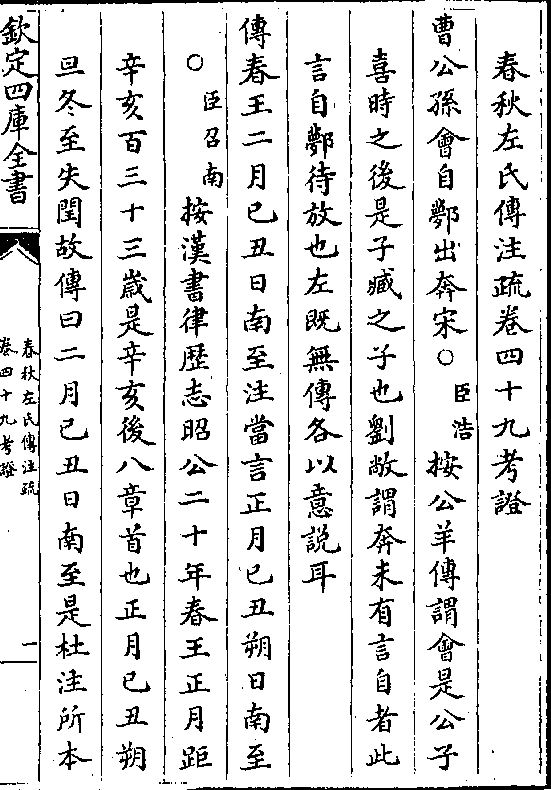 春秋左氏傳注疏卷四十九考證
曹公孫會自鄸出奔宋○臣浩按公羊傳謂會是公子
喜時之後是子臧之子也劉敞謂奔未有言自者此
言自鄸待放也左既無傳各以意説耳
傳春王二月已丑日南至注當言正月已丑朔日南至
○臣召南按漢書律歴志昭公二十年春王正月距
辛亥百三十三嵗是辛亥後八章首也正月已丑朔
旦冬至失閏故傳曰二月已丑日南至是杜注所本
欽定四庫全書
春秋左氏傳注疏
卷四十九考證
一